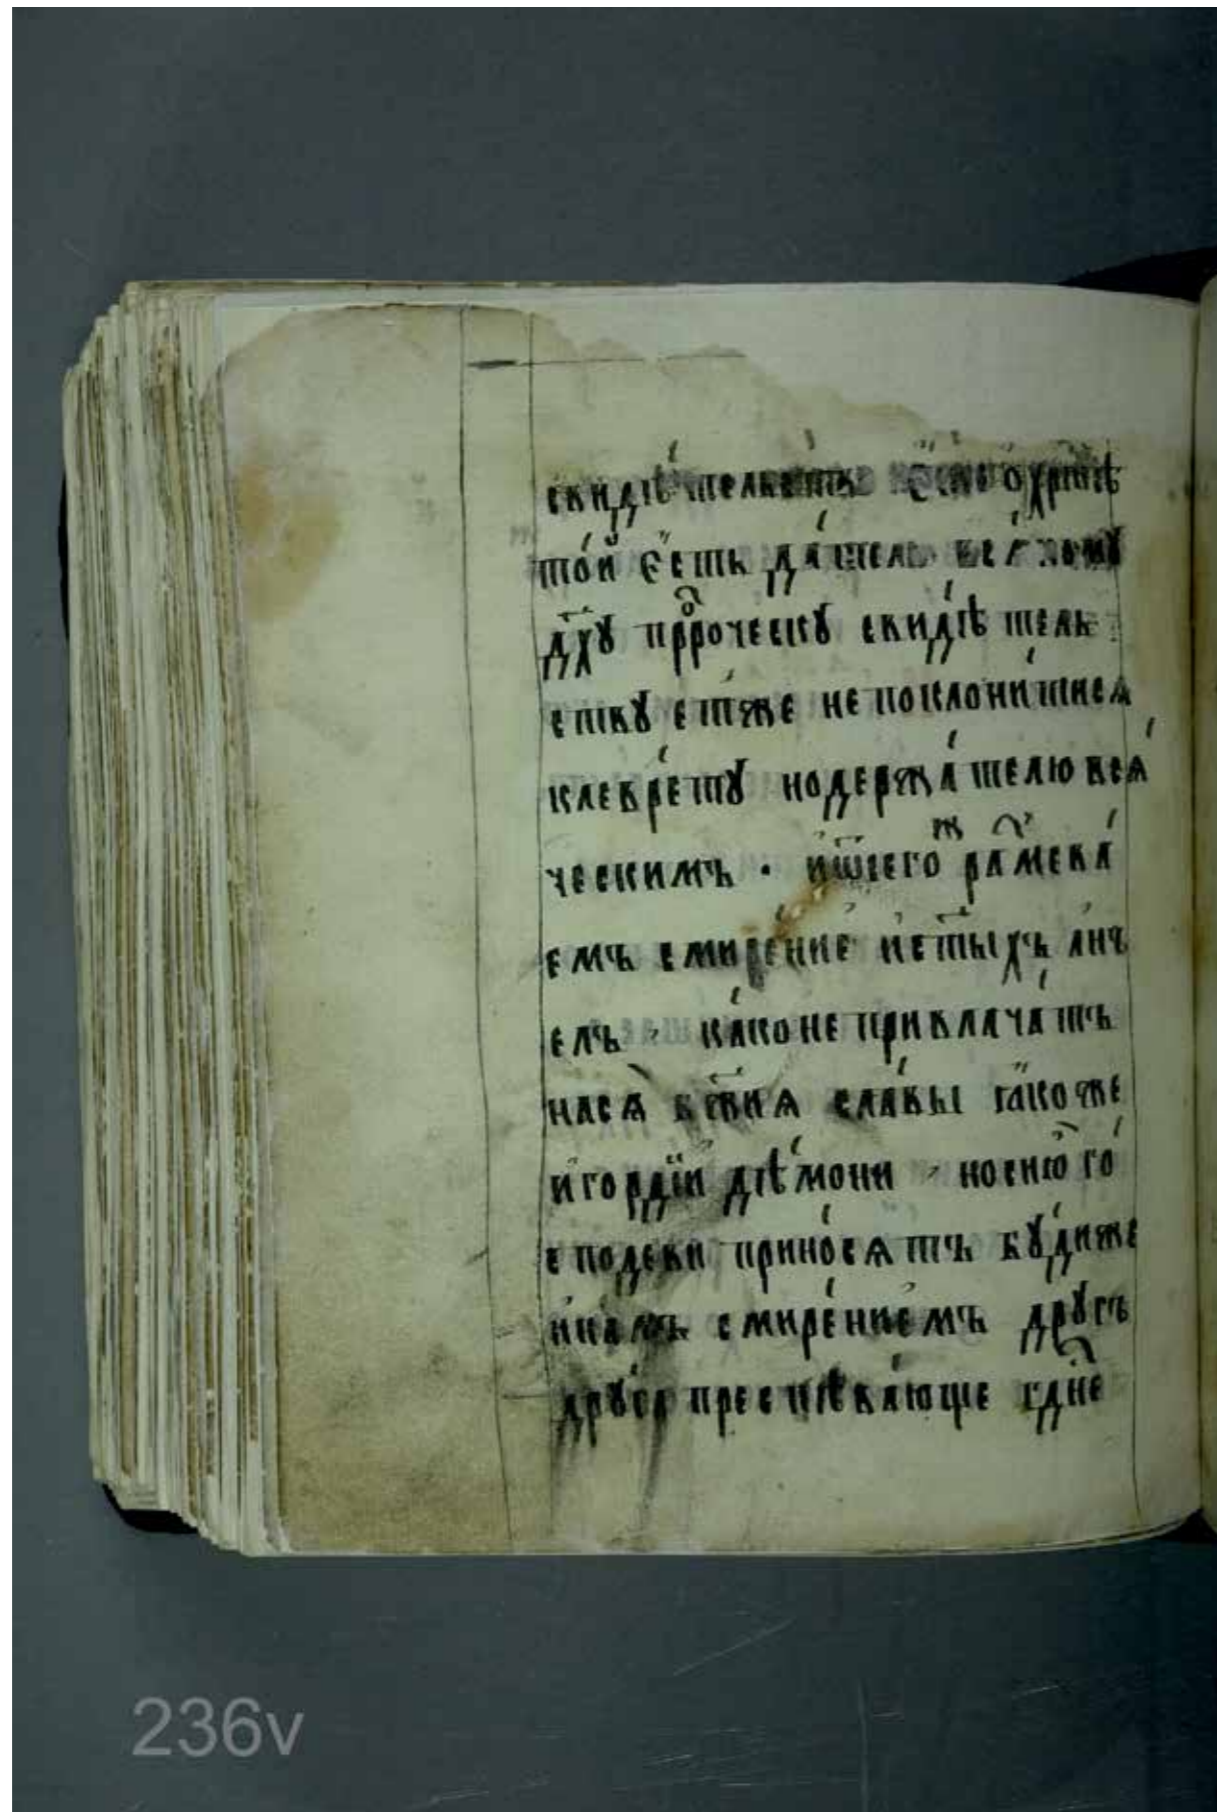 свидѣтельство
то́й є҆сть да́тель всѧ́комꙋ
дх҃ꙋ прⷪ҇рческꙋ свидѣ́тель
ствꙋ ст҃же непоклони́тисѧ
клевре́тꙋ нодержа́телю всѧ́
ческимъ · ѿсего ра
емъ смире́ние и҆ст҃ыхъ а҆нъ
елъ , ка́коне привлача́тъ
насѧ бж҃иѧ сла́вы ꙗ҆коже
и҆го́рдїи дѣ́мони , носию го́
сподеви прино́сѧтъ бꙋ́диже
и҆намъ смире́ниемъ дрꙋгъ
дрꙋга преспѣва́юще
236v